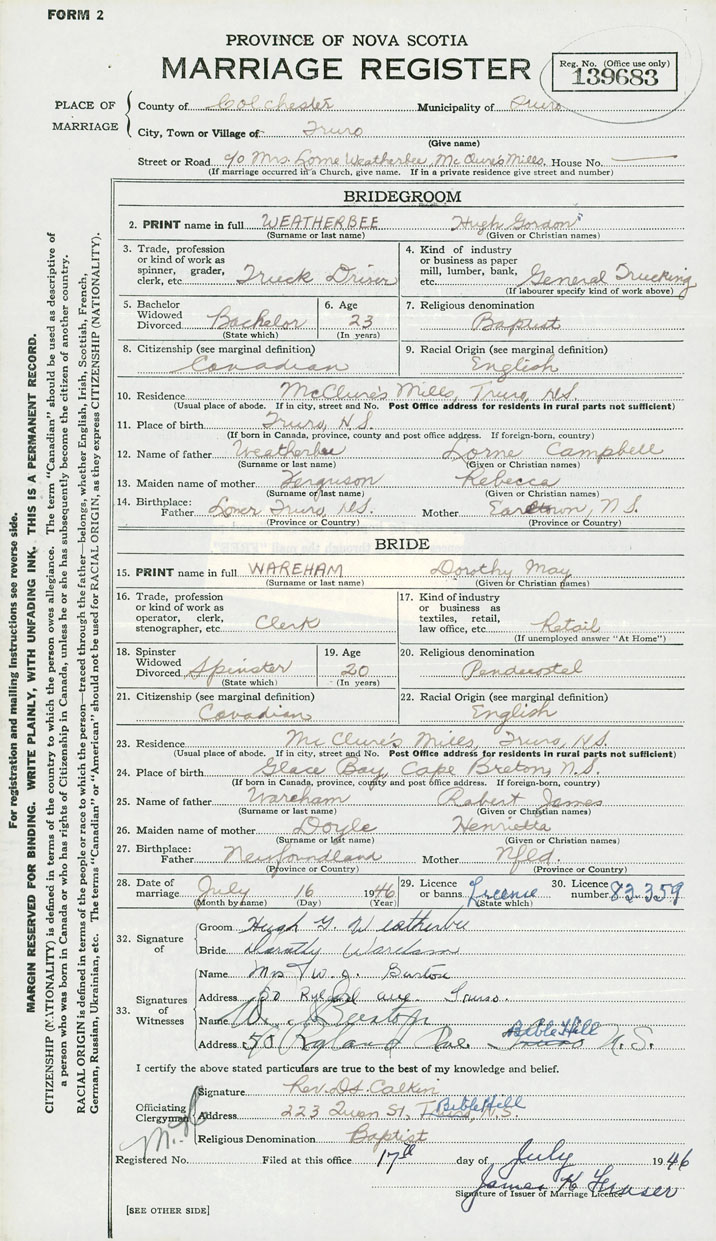 FORM 2
PROVINCE OF NOVA SCOTIA
MARRIAGE REGISTER
Reg. No. (Office use only)
139683
PLACE OF MARRIAGE
County of Colchester Municipality of Truro
City, Town or Village of Truro
(Give name)
Street or Road c/o Mrs. Lorne Weatherbee, McClure's Mills, House No.
(If marriage occurred in a Church, give name. If in a private residence give street and number)
BRIDEGROOM
2. PRINT name in full WEATHERBEE Hugh Gordon
(Surname or last name) (Given or Christian names)
3. Trade, profession or kind of work as spinner, grader, clerk, etc. Truck Driver
4. Kind of industry or business as paper mill, lumber, bank, etc. General Trucking
(If labourer specify kind of work above)
5. Bachelor Widowed Divorced Bachelor
(State which)
6. Age 23
(In years)
7. Religious denomination
Baptist
8. Citizenship (see marginal definition)
Canadian
9. Racial Origin (see marginal definition)
English
10. Residence McClure's Mills, Truro, N.S.
(Usual place of abode. If in city, street and No. Post Office address for residents in rural parts not sufficient)
11. Place of birth Truro, N.S.
(If born in Canada, province, county and post office address. If foreign-born, country)
12. Name of father Weatherbee Lorne Campbell
(Surname or last name) (Given or Christian names)
13. Maiden name of mother Ferguson Rebecca
(Surname or last name) (Given or Christian names)
14. Birthplace: Father Lower Truro, N.S. Mother Earltown, N.S.
(Province or Country) (Province or Country)
BRIDE
15. PRINT name in full WAREHAM Dorothy May
(Surname or last name) (Given or Christian names)
16. Trade, profession or kind of work as operator, clerk, stenographer, etc. Clerk
17. Kind of industry or business as textiles, retail, law office, etc. Retail
(If unemployed answer "At Home")
18. Spinster Widowed Divorced Spinster
(State which)
19. Age 20
(In years)
20. Religious denomination
Pendecostel
21. Citizenship (see marginal definition)
Canadian
22. Racial Origin (see marginal definition)
English
23. Residence McClure's Mills, Truro, N.S.
(Usual place of abode. If in city, street and No. Post Office address for residents in rural parts not sufficient)
24. Place of birth Glace Bay, Cape Breton, N.S.
(If born in Canada, province, county and post office address. If foreign-born, country)
25. Name of father Wareham Robert James
(Surname or last name) (Given or Christian names)
26. Maiden name of mother Doyle Henrietta
(Surname or last name) (Given or Christian names)
27. Birthplace: Father Newfoundland Mother Nfld.
(Province or Country) (Province or Country)
28. Date of marriage July 16 1946
(Month by name) (Day) (Year)
29. Licence or banns. License
(State which)
30. Licence number 83359
32. Signature of
Groom Hugh G. Weatherbee
Bride Dorothy Wareham
33. Signatures of Witnesses
Name Mrs W. J. Burton
Address 50 Ryland Ave. Truro.
Name Burton
Address 50 Ryland Ave. Truro Bible Hill N.S.
I certify the above stated particulars are true to the best of my knowledge and belief.
Officiating Clergyman
Signature Rev. D. Calkin
Address 223 Queen St, Truro, Bible Hill N.S.
Religious Denomination Baptist
Registered No. Filed at this office 17th day of July 1946
James K Fraser
Signature of Issuer of Marriage Licence
[SEE OTHER SIDE]
For registration and mailing instructions see reverse side.
MARGIN RESERVED FOR BINDING. WRITE PLAINLY, WITH UNFADING INK, THIS IS A PERMANENT RECORD.
CITIZENSHIP (NATIONALITY) is defined in terms of the country to which the person owes allegiance. The term "Canadian" should be used as descriptive of
a person who was born in Canada or who has rights of Citizenship in Canada, unless he or she has subsequently become the citizen of another country.
RACIAL ORIGIN is defined in terms of the people or race to which the person—traced through the father—belongs, whether English, Irish, Scottish, French,
German, Russian, Ukrainian, etc. The terms "Canadian" or "American" should not be used for RACIAL ORIGIN, as they express CITIZENSHIP (NATIONALITY).